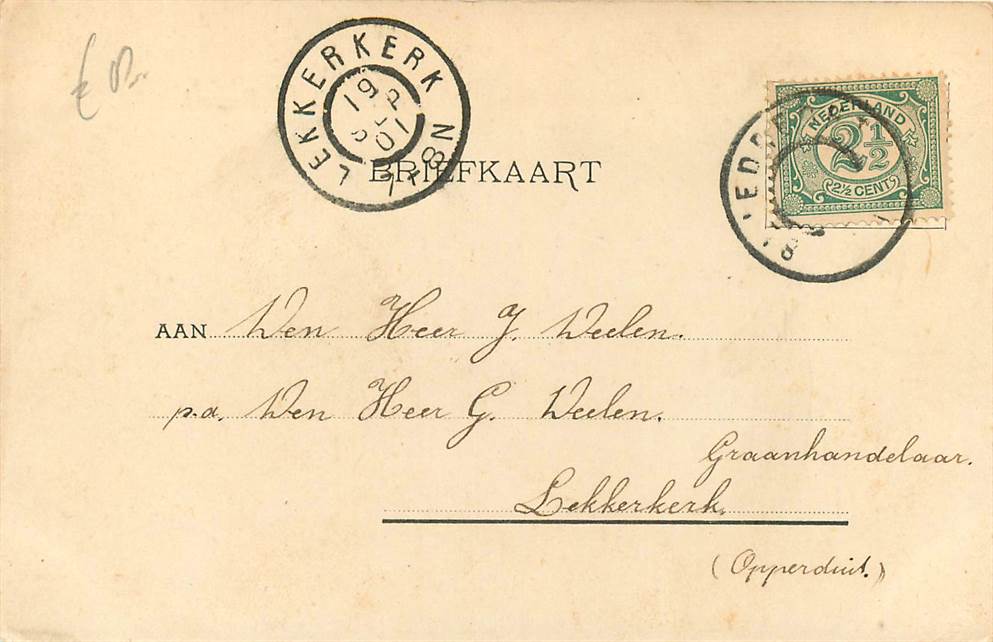 LEKKERKERK
19 SEP 01
7-8N
BRIEFKAART
NEDERLAND
2½
2½ CENT
AAN Den Heer J. Deelen.
p.a. Den Heer G. Deelen.
Graanhandelaar.
Lekkerkerk.
(Opperduit.)